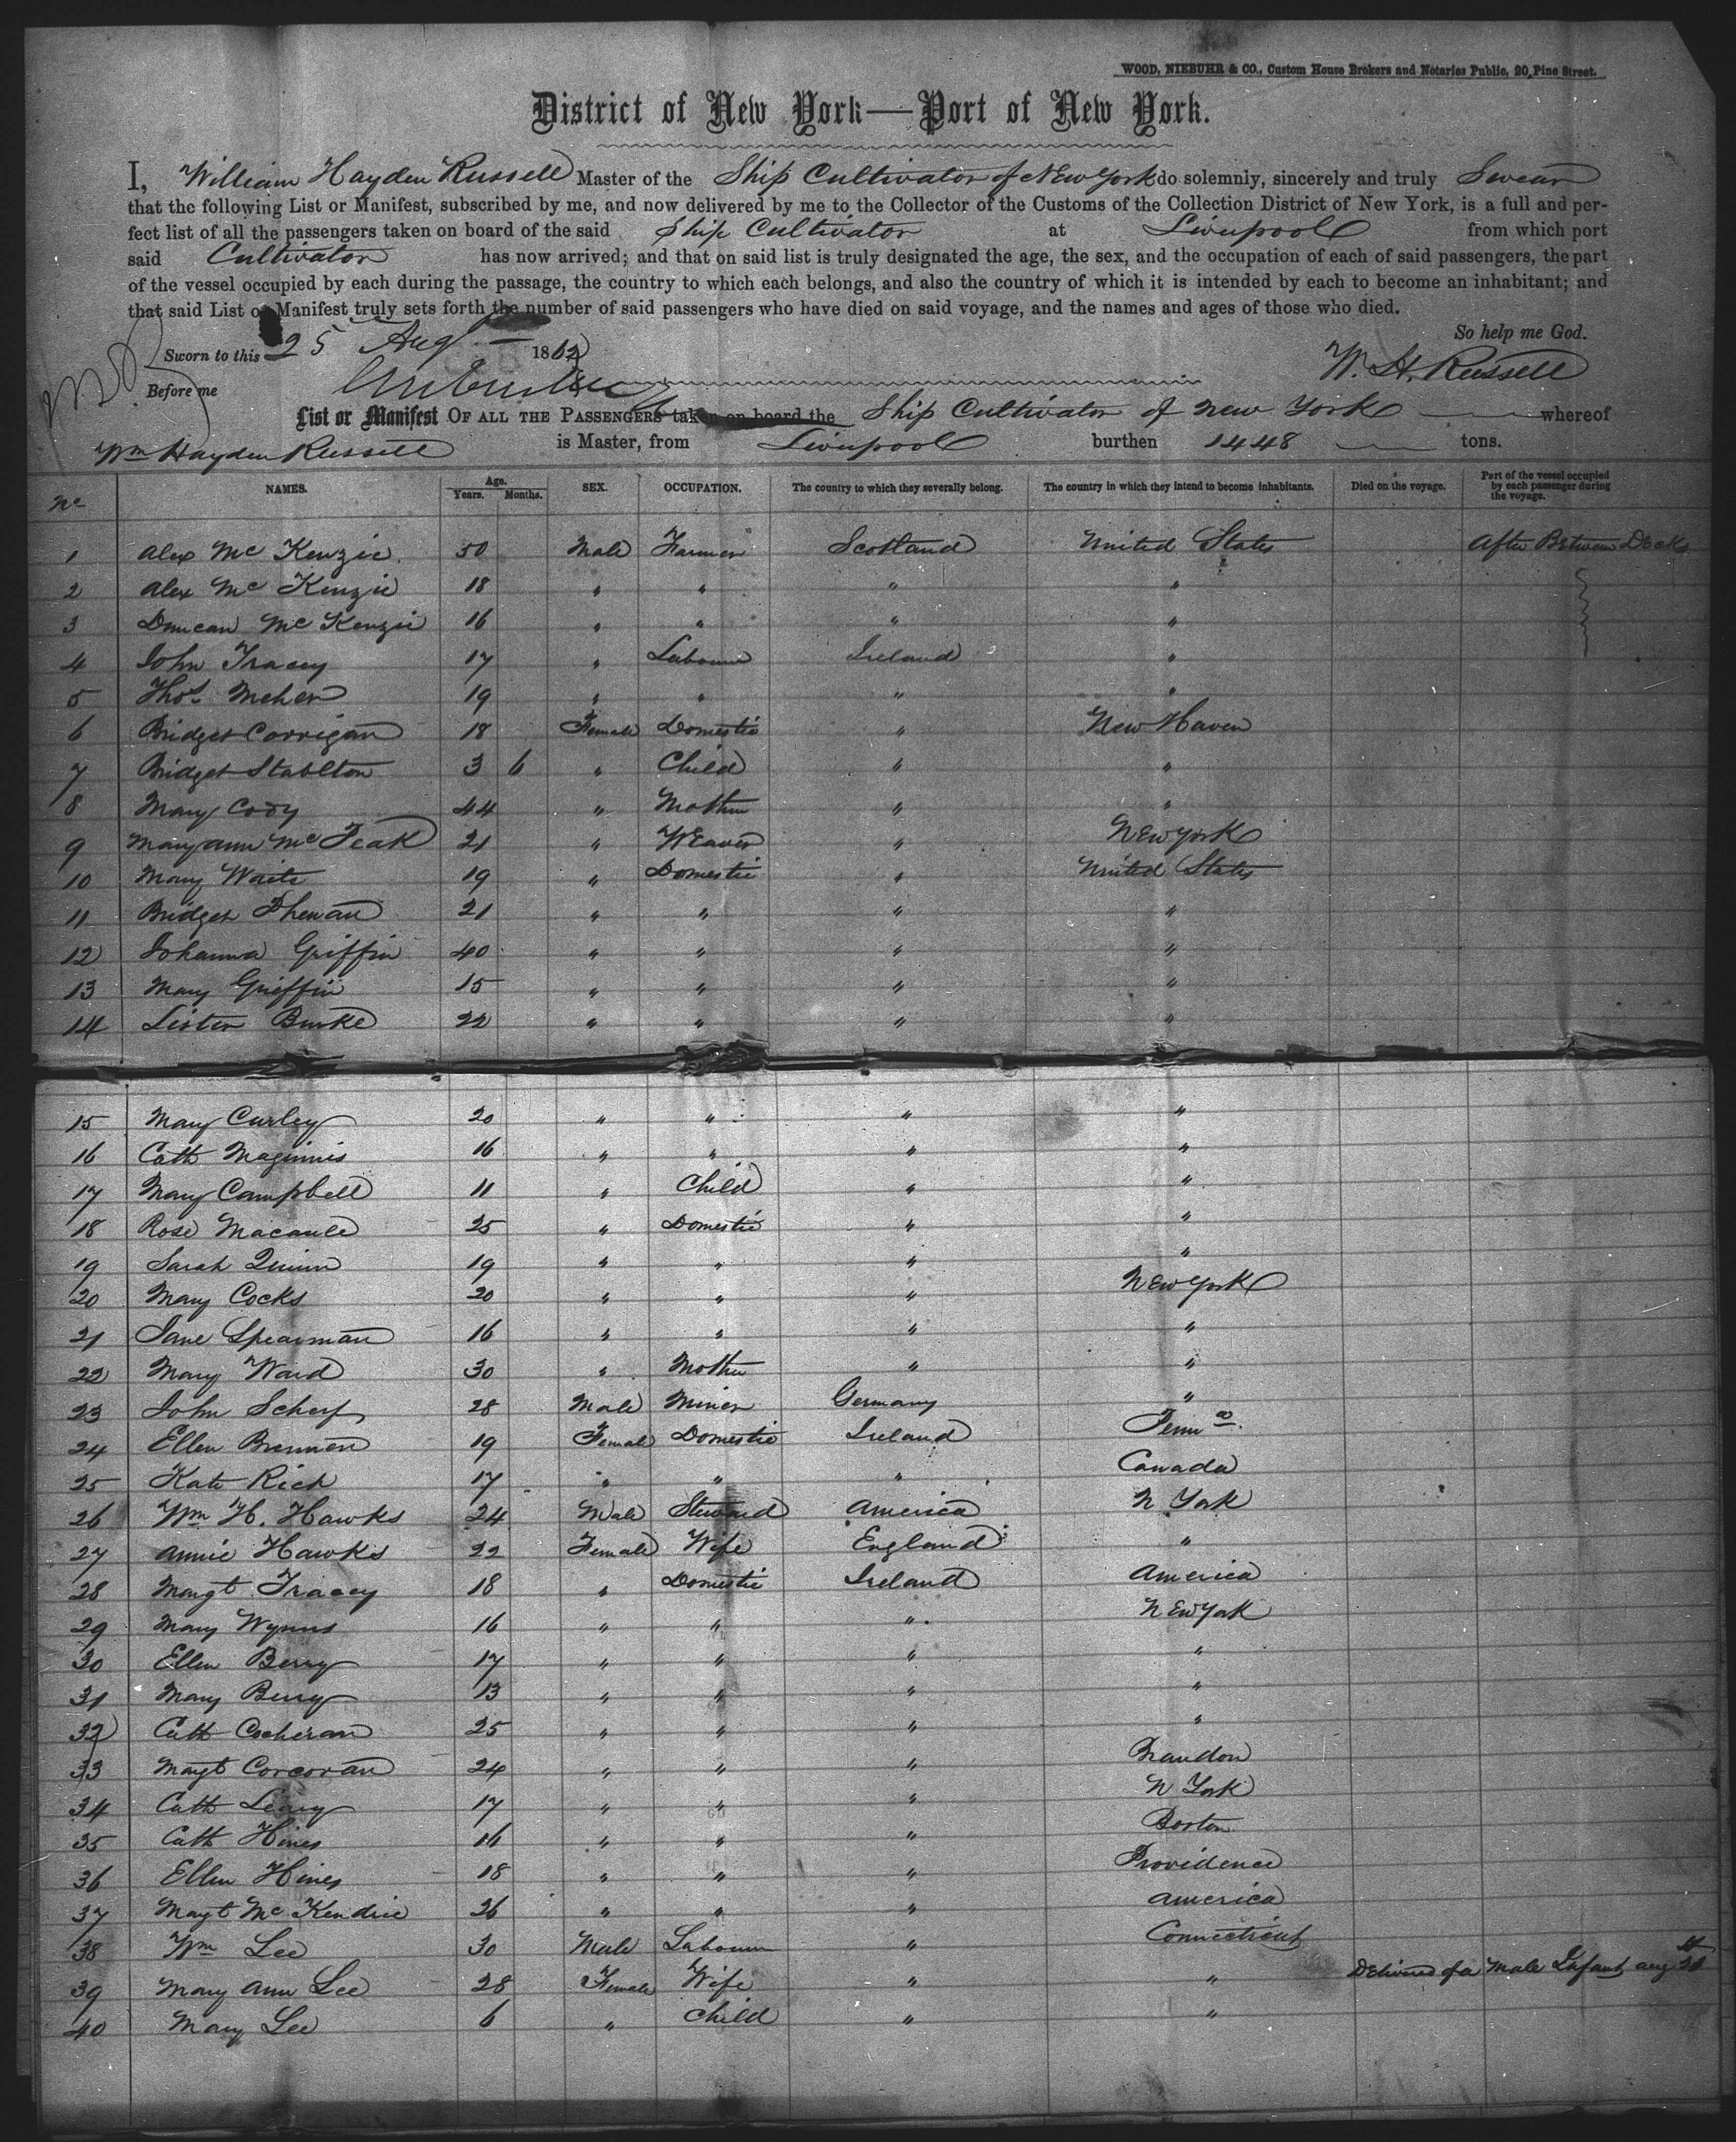 WOOD, NIEBUHR & CO., Custom House Brokers and Notaries Public, 20, Pine Street.
District of New York—Port of New York.
I, William Hayden Russell Master of the Ship Cultivator of New York do solemnly, sincerely and truly Swear
that the following List or Manifest, subscribed by me, and now delivered by me to the Collector of the Customs of the Collection District of New York, is a full and per-
fect list of all the passengers taken on board of the said Ship Cultivator at Liverpool from which port
said Cultivator has now arrived; and that on said list is truly designated the age, the sex, and the occupation of each of said passengers, the part
of the vessel occupied by each during the passage, the country to which each belongs, and also the country of which it is intended by each to become an inhabitant; and
that said List or Manifest truly sets forth the number of said passengers who have died on said voyage, and the names and ages of those who died.
So help me God.
Sworn to this 25 Aug 186
W. H. Russell
Before me
List or Manifest OF ALL THE PASSENGERS taken on board the Ship Cultivator of New York whereof
Wm Hayden Russell is Master, from Liverpool burthen 1448 tons.
No NAMES. Age. Years. Months. SEX. OCCUPATION. The country to which they severally belong. The country in which they intend to become inhabitants. Died on the voyage. Part of the vessel occupied by each passenger during the voyage.
1 Alex McKenzie 50 Male Farmer Scotland United States After Between Decks
2 Alex McKenzie 18 " " " "
3 Duncan McKenzie 16 " " " "
4 John Tracey 17 " Labourer Ireland "
5 Thos Meher 19 " " " "
6 Bridget Corrigan 18 Female Domestic " New Haven
7 Bridget Stablton 3 6 " Child " "
8 Mary Cody 44 " Mother " "
9 Mary Ann McFeak 21 " Weaver " New York
10 Mary Waite 19 " Domestic " United States
11 Bridget 21 " " " "
12 Johanna Griffin 40 " " " "
13 Mary Griffin 15 " " " "
14 Burke 22 " " " "
15 Mary Curley 20 " " " "
16 Cath Maginnis 16 " " " "
17 Mary Campbell 11 " Child " "
18 Rose Macaule 25 " Domestic " "
19 Sarah Quinn 19 " " " "
20 Mary Cocks 20 " " " New York
21 Jane Spearman 16 " " " "
22 Mary Ward 30 " Mother " "
23 John Scherf 28 Male Miner Germany "
24 Ellen Brennen 19 Female Domestic Ireland Penna.
25 Kate Rich 17 " " " Canada
26 Wm H. Hawks 24 Male Steward America N York
27 Annie Hawks 22 Female Wife England "
28 Margt Tracey 18 " Domestic Ireland America
29 Mary Wynns 16 " " " New York
30 Ellen Berry 17 " " " "
31 Mary Berry 13 " " " "
32 Cath Cocheran 25 " " " "
33 Margt Corcoran 24 " " " Brandon
34 Cath Leary 17 " " " N York
35 Cath Hines 16 " " " Boston
36 Ellen Hines 18 " " " Providence
37 Margt McKendrie 26 " " " America
38 Wm Lee 30 Male Labourer " Connecticut
39 Mary Ann Lee 28 Female Wife " " Delivered of a Male Infant Aug
40 Mary Lee 6 " Child " "